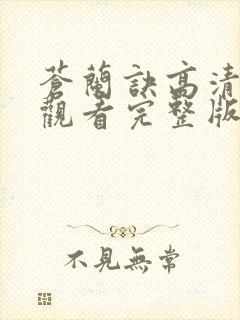 蒼蘭訣高清
觀看完整版
不見無常